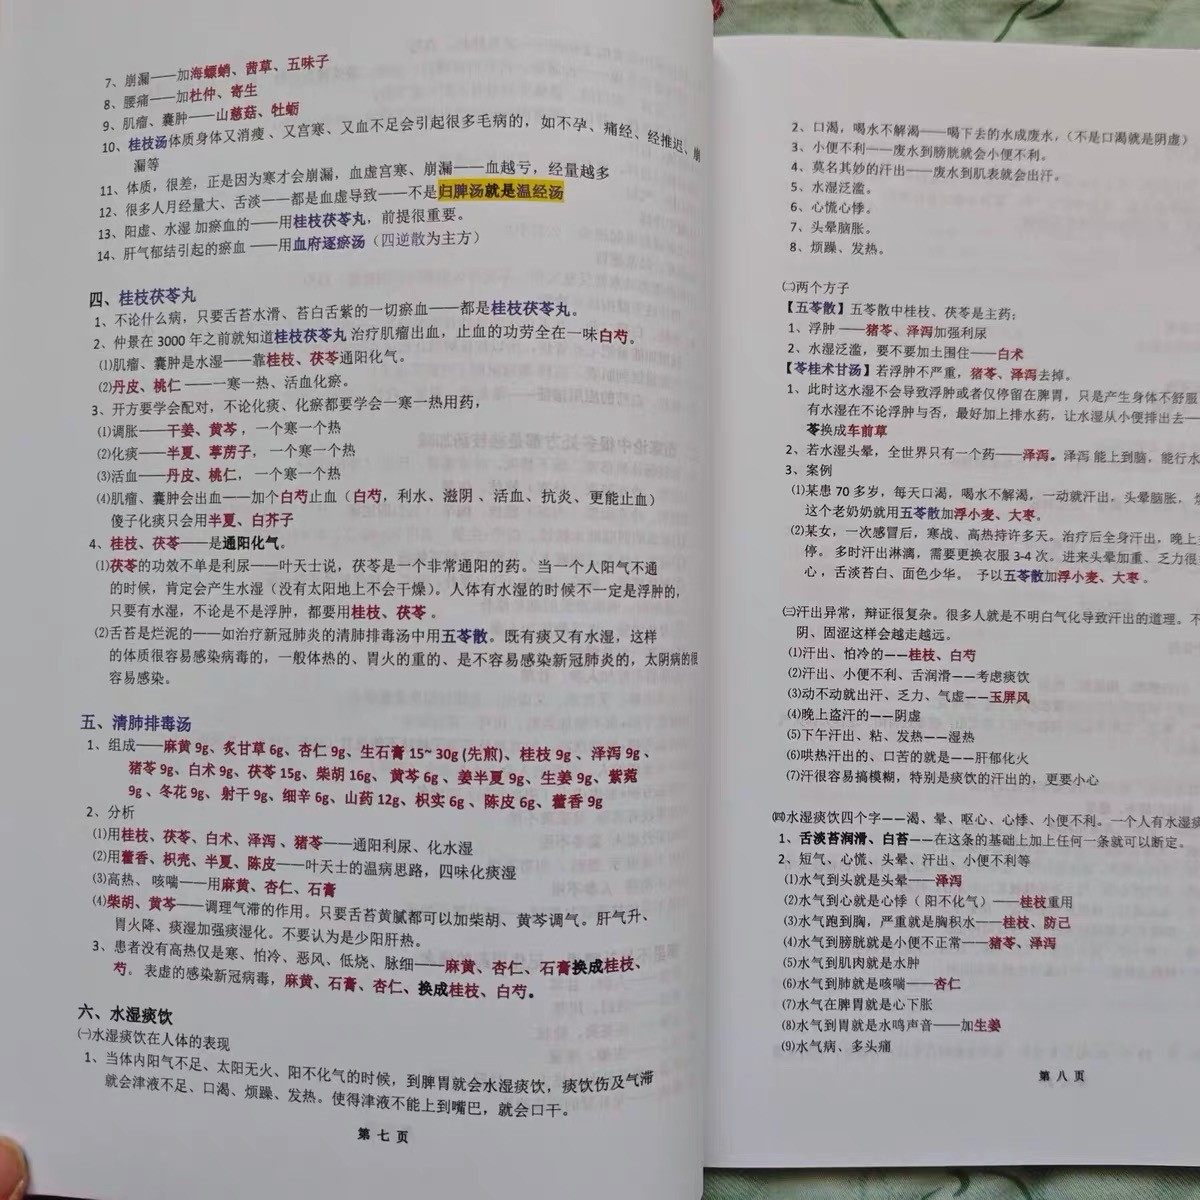 7、崩漏——加海螵蛸、茜草、五味子
8、腰痛——加杜仲、寄生
9、肌瘤、囊肿——山慈菇、牡蛎
10、桂枝汤体质身体又消瘦、又宫寒、又血不足会引起很多毛病的，如不孕、痛经、经推迟、崩
漏等
11、体质，很差，正是因为寒才会崩漏，血虚宫寒、崩漏——血越亏，经量越多
12、很多人月经量大、舌淡——都是血虚导致——不是归脾汤就是温经汤
13、阳虚、水湿 加瘀血的——用桂枝茯苓丸，前提很重要。
14、肝气郁结引起的瘀血 ——用血府逐瘀汤（四逆散为主方）
四、桂枝茯苓丸
1、不论什么病，只要舌苔水滑、苔白舌紫的一切瘀血——都是桂枝茯苓丸。
2、仲景在 3000 年之前就知道桂枝茯苓丸 治疗肌瘤出血，止血的功劳全在一味白芍。
⑴肌瘤、囊肿是水湿——靠桂枝、茯苓通阳化气。
⑵丹皮、桃仁 ——一寒一热、活血化瘀。
3、开方要学会配对，不论化痰、化瘀都要学会一寒一热用药，
⑴调胀——干姜、黄芩 ，一个寒一个热
⑵化痰——半夏、葶苈子， 一个寒一个热
⑶活血——丹皮、桃仁， 一个寒一个热
⑷肌瘤、囊肿会出血——加个白芍止血（白芍，利水、滋阴 、活血、抗炎、更能止血）
傻子化痰只会用半夏、白芥子
4、桂枝、茯苓——是通阳化气。
⑴茯苓的功效不单是利尿——叶天士说，茯苓是一个非常通阳的药。当一个人阳气不通
的时候，肯定会产生水湿（没有太阳地上不会干燥）。人体有水湿的时候不一定是浮肿的，
只要有水湿，不论是不是浮肿，都要用桂枝、茯苓 。
⑵舌苔是烂泥的——如治疗新冠肺炎的清肺排毒汤中用五苓散。既有痰又有水湿，这样
的体质很容易感染病毒的，一般体热的、胃火的重的、是不容易感染新冠肺炎的，太阴病的很
容易感染。
五、清肺排毒汤
1、组成——麻黄 9g、炙甘草 6g、杏仁 9g、生石膏 15~ 30g (先煎)、桂枝 9g 、泽泻 9g 、
猪苓 9g、白术 9g、茯苓 15g、柴胡 16g、 黄芩 6g 、姜半夏 9g、生姜 9g、紫菀
9g 、冬花 9g、射干 9g、细辛 6g、山药 12g、枳实 6g 、陈皮 6g、藿香 9g
2、分析
⑴用桂枝、茯苓、白术、泽泻 、猪苓——通阳利尿、化水湿
⑵用藿香、枳壳、半夏、陈皮——叶天士的温病思路，四味化痰湿
⑶高热、 咳喘——用麻黄、杏仁、石膏
⑷柴胡、黄芩——调理气滞的作用。只要舌苔黄腻都可以加柴胡、黄芩调气。肝气升、
胃火降、痰湿加强痰湿化。不要认为是少阳肝热。
3、患者没有高热仅是寒、怕冷、恶风、低烧、脉细——麻黄、杏仁、石膏换成桂枝、
芍。 表虚的感染新冠病毒，麻黄、石膏、杏仁、换成桂枝、白芍。
六、水湿痰饮
㈠水湿痰饮在人体的表现
1、当体内阳气不足、太阳无火、阳不化气的时候，到脾胃就会水湿痰饮，痰饮伤及气滞
就会津液不足、口渴、烦躁、发热。使得津液不能上到嘴巴，就会口干。
第 七 页
2、口渴，喝水不解渴——喝下去的水成废水，（不是口渴就是阴虚）
3、小便不利——废水到膀胱就会小便不利。
4、莫名其妙的汗出——废水到肌表就会出汗。
5、水湿泛滥。
6、心慌心悸。
7、头晕脑胀。
8、烦躁、发热。
㈡两个方子
【五苓散】五苓散中桂枝、茯苓是主药；
1、浮肿 ——猪苓、泽泻加强利尿
2、水湿泛滥，要不要加土围住——白术
【苓桂术甘汤】若浮肿不严重，猪苓、泽泻去掉。
1、此时这水湿不会导致浮肿或者仅停留在脾胃，只是产生身体不舒服
有水湿在不论浮肿与否，最好加上排水药，让水湿从小便排出去—
苓换成车前草
2、若水湿头晕，全世界只有一个药——泽泻。泽泻 能上到脑，能行水
3、案例
⑴某患 70 多岁，每天口渴，喝水不解渴，一动就汗出，头晕脑胀，
这个老奶奶就用五苓散加浮小麦、大枣。
⑵某女，一次感冒后，寒战、高热持许多天。治疗后全身汗出，晚上
停。 多时汗出淋漓，需要更换衣服 3-4 次。进来头晕加重、乏力很
心 ，舌淡苔白、面色少华。 予以五苓散加浮小麦、大枣 。
㈢汗出异常，辩证很复杂。很多人就是不明白气化导致汗出的道理。不
阴、固涩这样会越走越远。
⑴汗出、怕冷的——桂枝、白芍
⑵汗出、小便不利、舌润滑——考虑痰饮
⑶动不动就出汗、乏力、气虚——玉屏风
⑷晚上盗汗的——阴虚
⑸下午汗出、粘、发热——湿热
⑹哄热汗出的、口苦的就是——肝郁化火
⑺汗很容易搞模糊，特别是痰饮的汗出的，更要小心
㈣水湿痰饮四个字——渴、晕、呕心、心悸、小便不利。一个人有水湿痰
1、舌淡苔润滑、白苔——在这条的基础上加上任何一条就可以断定。
2、短气、心慌、头晕、汗出、小便不利等
⑴水气到头就是头晕——泽泻
⑵水气到心就是心悸（ 阳不化气）——桂枝重用
⑶水气跑到胸，严重就是胸积水——桂枝、防己
⑷水气到膀胱就是小便不正常——猪苓、泽泻
⑸水气到肌肉就是水肿
⑹水气到肺就是咳喘——杏仁
⑺水气在脾胃就是心下胀
⑻水气到胃就是水鸣声音——加生姜
⑼水气病、多头痛
第 八 页